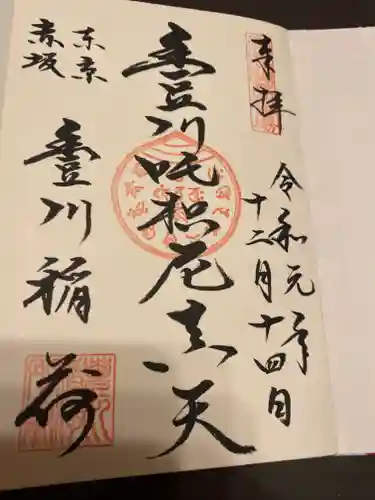 来拝
令和元年
十二月十四日
豊川吒枳尼真天
東京
赤坂
豊川稲荷